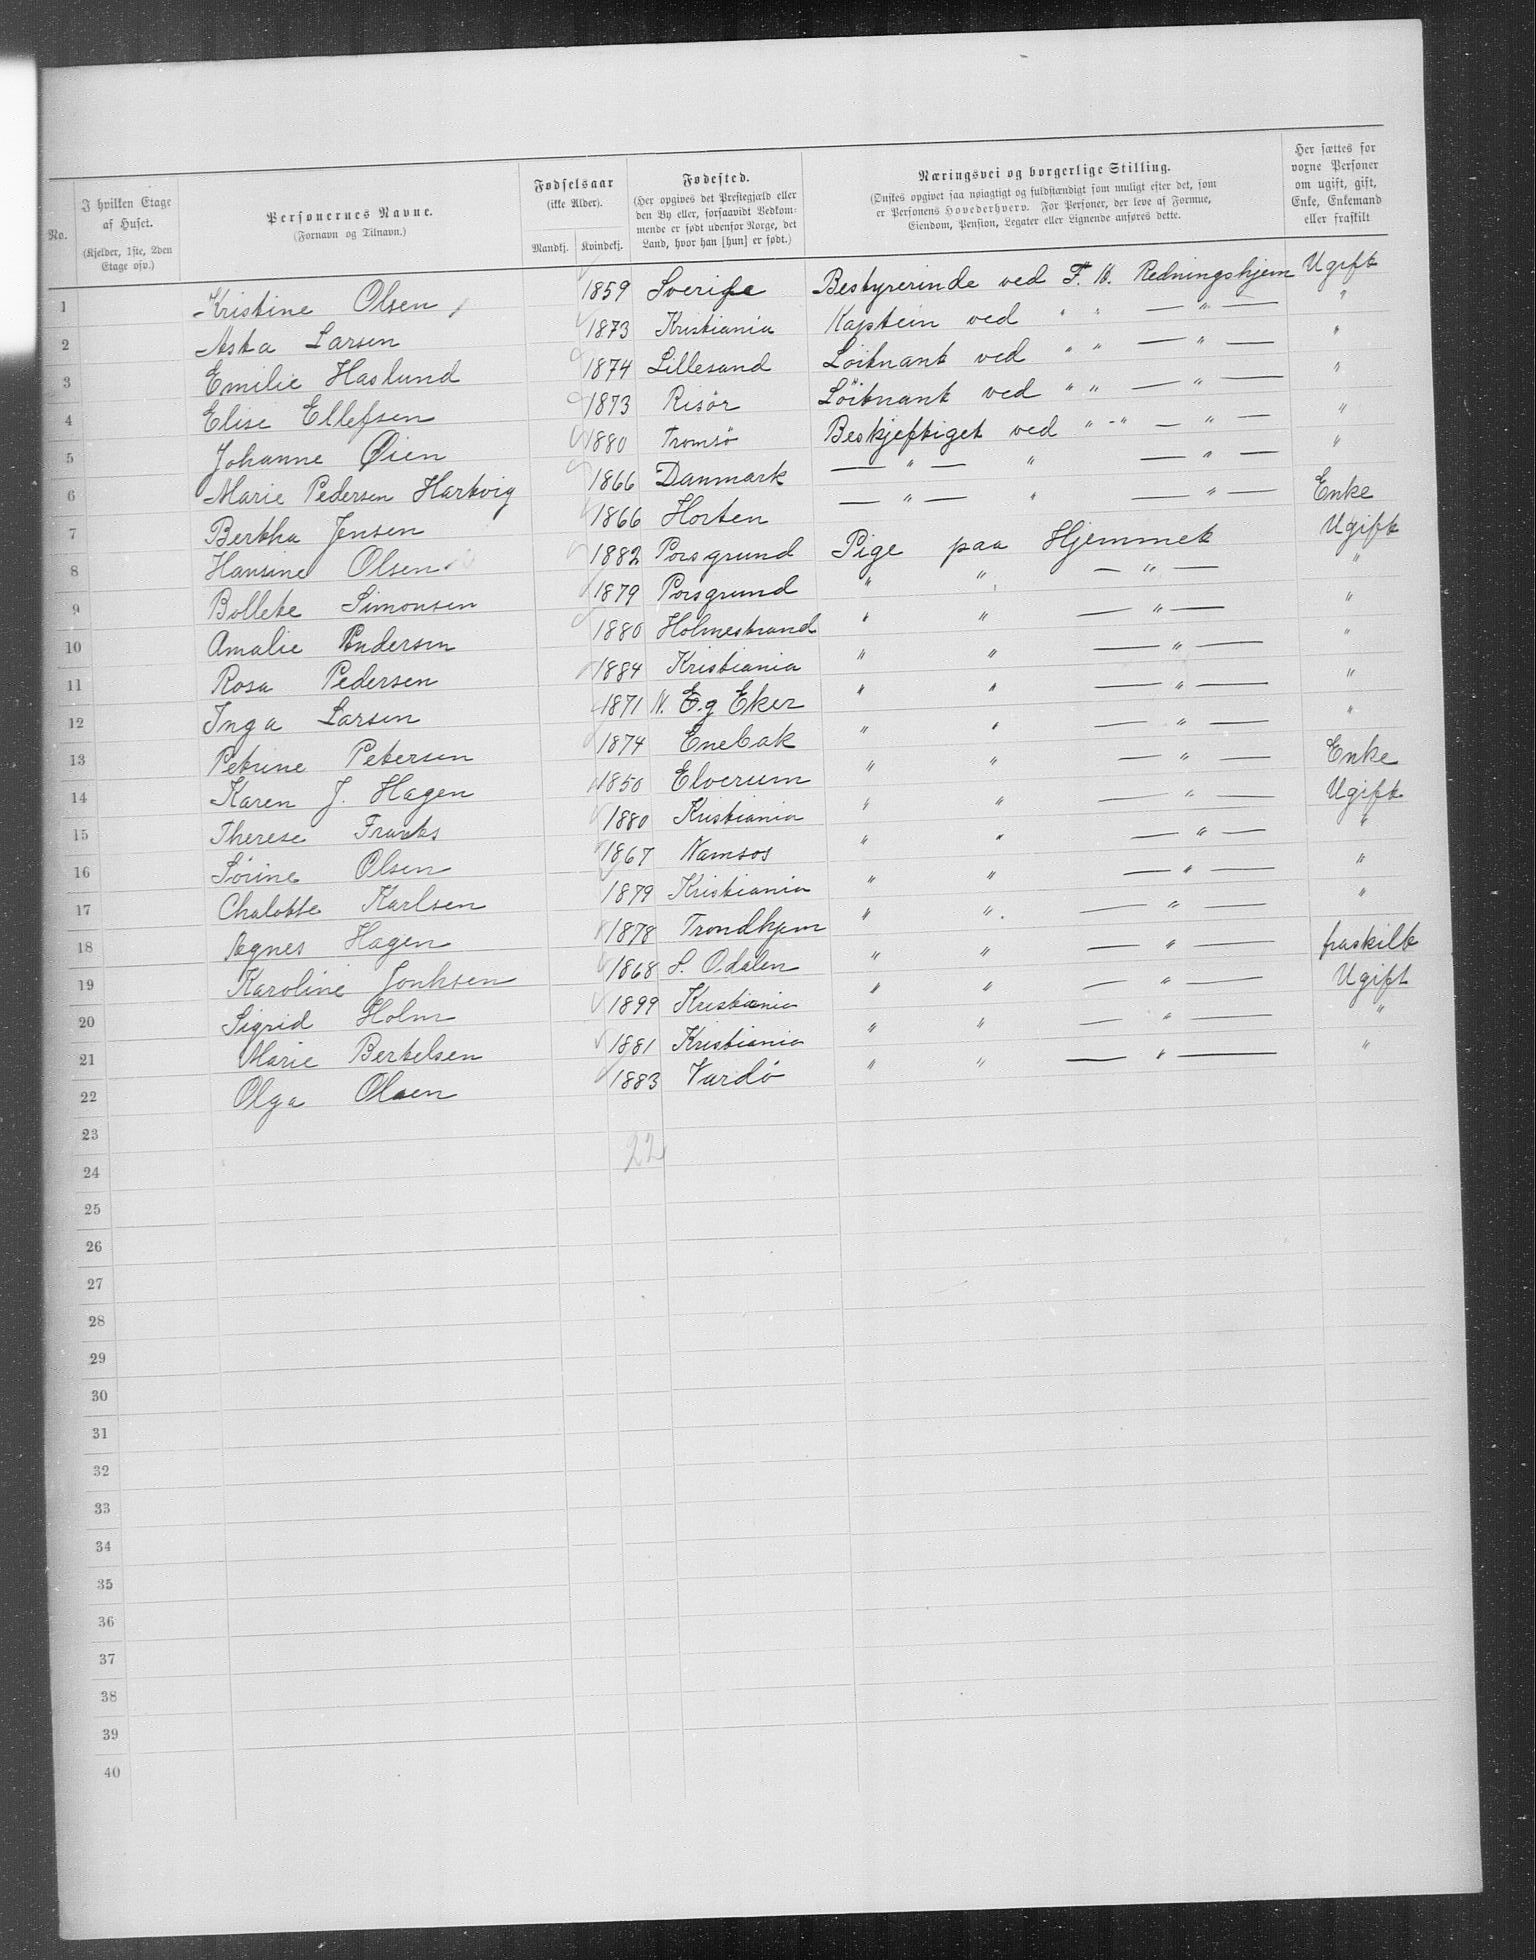 No.	I hvilken Etage af Huset. (Kjelder, 1ste, 2den Etage osv.)	Personernes Navne. (Fornavn og Tilnavn.)	Fødselsaar (ikke Alder). Mandkj. Kvindekj.	Fødested. (Her opgives det Præstegjæld eller den By eller, forsaavidt Vedkommende er født udenfor Norge, det Land, hvor han [hun] er født.)	Næringsvei og borgerlige Stilling. (Ønskes opgivet saa nøiagtigt og fuldstændigt som muligt efter det, som er Personens Hovederhverv. For Personer, der leve af Formue, Eiendom, Pension, Legater eller Lignende anføres dette.)	Her sættes for voxne Personer om ugift, gift, Enke, Enkemand eller fraskilt
1 Kristine Olsen 1859 Sverige Bestyrerinde ved F. A. Redningshjem Ugift
2 Asta Larsen 1873 Kristiania Kaptein ved " " — " — "
3 Emilie Haslund 1874 Lillesand Löitnant ved " " — " — "
4 Elise Ellefsen 1873 Risör Löitnant ved " " — " — "
5 Johanne Øien 1880 Tromsö Beskjeftiget ved " " — " — "
6 Marie Pedersen Hartvig 1866 Danmark — " — " — " — "
7 Bertha Jensen 1866 Horten — " — " — " — Enke
8 Hansine Olsen 1882 Porsgrund Pige paa Hjemmet Ugift
9 Bollete Simonsen 1879 Porsgrund " " — " — "
10 Amalie Andersen 1880 Holmestrand " " — " — "
11 Rosa Pedersen 1884 Kristiania " " — " — "
12 Inga Larsen 1871 N. Eg Eker " " — " — "
13 Petrine Petersen 1874 Enebak " " — " — "
14 Karen J. Hagen 1850 Elverum " " — " — Enke
15 Therese Franks 1880 Kristiania " " — " — Ugift
16 Sörine Olsen 1867 Namsos " " — " — "
17 Chalotte Karlsen 1879 Kristiania " " — " — "
18 Agnes Hagen 1878 Trondhjem " " — " — "
19 Karoline Jonhsen 1868 S. Odalen " " — " — fraskilt
20 Sigrid Holm 1899 Kristiania " " — " — Ugift
21 Marie Bertelsen 1881 Kristiania " " — " — "
22 Olga Olsen 1883 Vardö " " — " — "
23
22
24
25
26
27
28
29
30
31
32
33
34
35
36
37
38
39
40